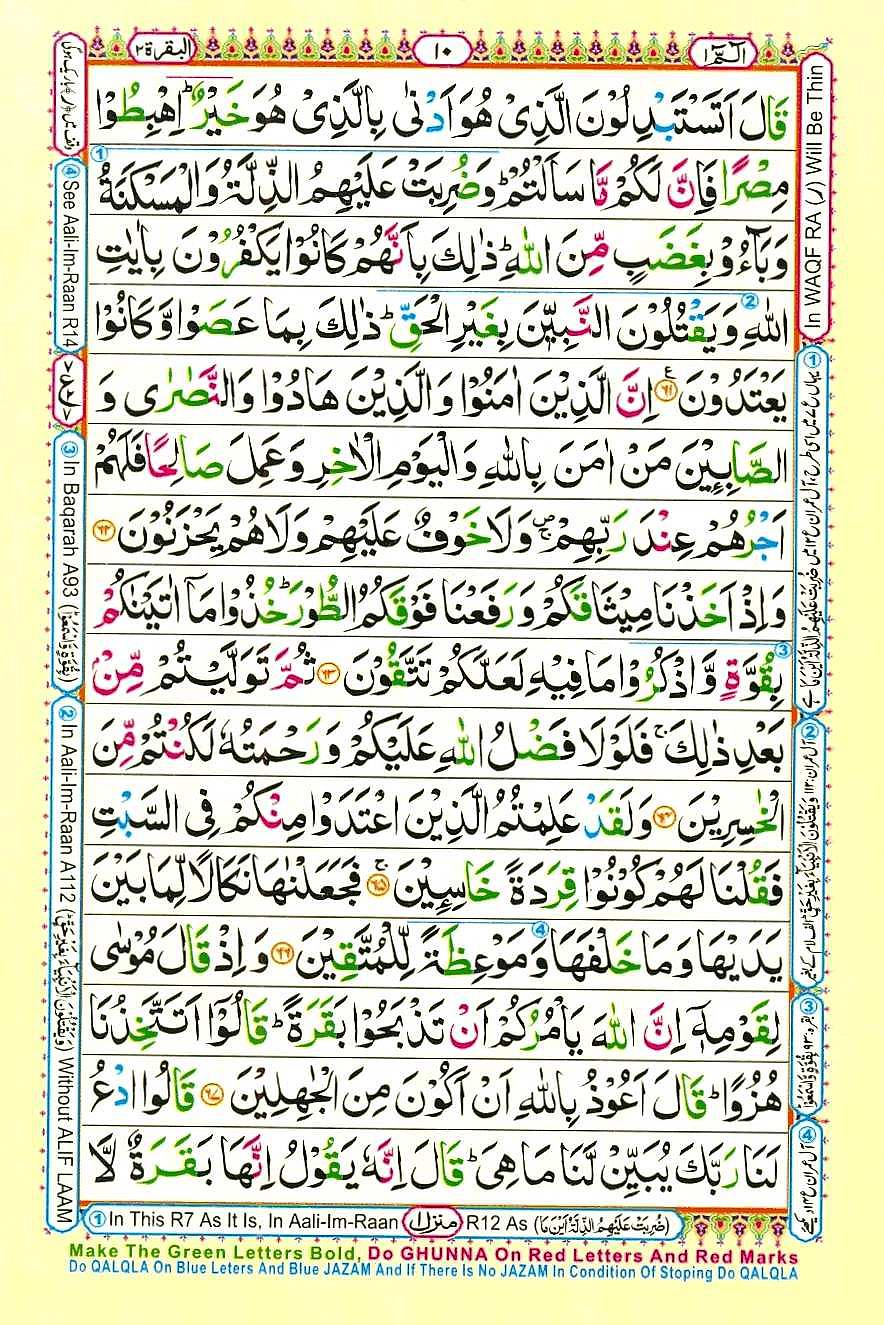 الٓمّٓ ١
١٠
البقرة ٢
قَالَ اَتَسْتَبْدِلُوْنَ الَّذِىْ هُوَ اَدْنٰى بِالَّذِىْ هُوَ خَيْرٌ ؕ اِهْبِطُوْا
مِصْرًا فَاِنَّ لَكُمْ مَّا سَاَلْتُمْ ؕ وَضُرِبَتْ عَلَيْهِمُ الذِّلَّةُ وَالْمَسْكَنَةُ
وَبَآءُوْ بِغَضَبٍ مِّنَ اللّٰهِ ؕ ذٰلِكَ بِاَنَّهُمْ كَانُوْا يَكْفُرُوْنَ بِاٰيٰتِ
اللّٰهِ وَيَقْتُلُوْنَ النَّبِيّٖنَ بِغَيْرِ الْحَقِّ ؕ ذٰلِكَ بِمَا عَصَوْا وَّكَانُوْا
يَعْتَدُوْنَ ۶۱ اِنَّ الَّذِيْنَ اٰمَنُوْا وَالَّذِيْنَ هَادُوْا وَالنَّصٰرٰى وَ
الصّٰبِـِٕيْنَ مَنْ اٰمَنَ بِاللّٰهِ وَالْيَوْمِ الْاٰخِرِ وَعَمِلَ صَالِحًا فَلَهُمْ
اَجْرُهُمْ عِنْدَ رَبِّهِمْ ۚ وَلَا خَوْفٌ عَلَيْهِمْ وَلَا هُمْ يَحْزَنُوْنَ ۶۲
وَاِذْ اَخَذْنَا مِيْثَاقَكُمْ وَرَفَعْنَا فَوْقَكُمُ الطُّوْرَ ؕ خُذُوْا مَآ اٰتَيْنٰكُمْ
بِقُوَّةٍ وَّاذْكُرُوْا مَا فِيْهِ لَعَلَّكُمْ تَتَّقُوْنَ ۶۳ ثُمَّ تَوَلَّيْتُمْ مِّنْۢ
بَعْدِ ذٰلِكَ ۚ فَلَوْلَا فَضْلُ اللّٰهِ عَلَيْكُمْ وَرَحْمَتُهٗ لَكُنْتُمْ مِّنَ
الْخٰسِرِيْنَ ۶۴ وَلَقَدْ عَلِمْتُمُ الَّذِيْنَ اعْتَدَوْا مِنْكُمْ فِى السَّبْتِ
فَقُلْنَا لَهُمْ كُوْنُوْا قِرَدَةً خَاسِـِٕيْنَ ۶۵ فَجَعَلْنٰهَا نَكَالًا لِّمَا بَيْنَ
يَدَيْهَا وَمَا خَلْفَهَا وَمَوْعِظَةً لِّلْمُتَّقِيْنَ ۶۶ وَاِذْ قَالَ مُوْسٰى
لِقَوْمِهٖٓ اِنَّ اللّٰهَ يَاْمُرُكُمْ اَنْ تَذْبَحُوْا بَقَرَةً ؕ قَالُوْٓا اَتَتَّخِذُنَا
هُزُوًا ؕ قَالَ اَعُوْذُ بِاللّٰهِ اَنْ اَكُوْنَ مِنَ الْجٰهِلِيْنَ ۶۷ قَالُوا ادْعُ
لَنَا رَبَّكَ يُبَيِّنْ لَّنَا مَا هِىَ ؕ قَالَ اِنَّهٗ يَقُوْلُ اِنَّهَا بَقَرَةٌ لَّا
In WAQF RA (ر) Will Be Thin
④ See Aali-Im-Raan R14
③ In Baqarah A93 (بِقُوَّةٍ وَّاسْمَعُوْا)
② In Aali-Im-Raan A112 (وَيَقْتُلُوْنَ الْاَنْۢبِيَآءَ بِغَيْرِ حَقٍّ) Without ALIF LAAM
① In This R7 As It Is, In Aali-Im-Raan R12 As (ضُرِبَتْ عَلَيْهِمُ الذِّلَّةُ اَيْنَ مَا)
منزل ١
Make The Green Letters Bold, Do GHUNNA On Red Letters And Red Marks
Do QALQLA On Blue Leters And Blue JAZAM And If There Is No JAZAM In Condition Of Stoping Do QALQLA